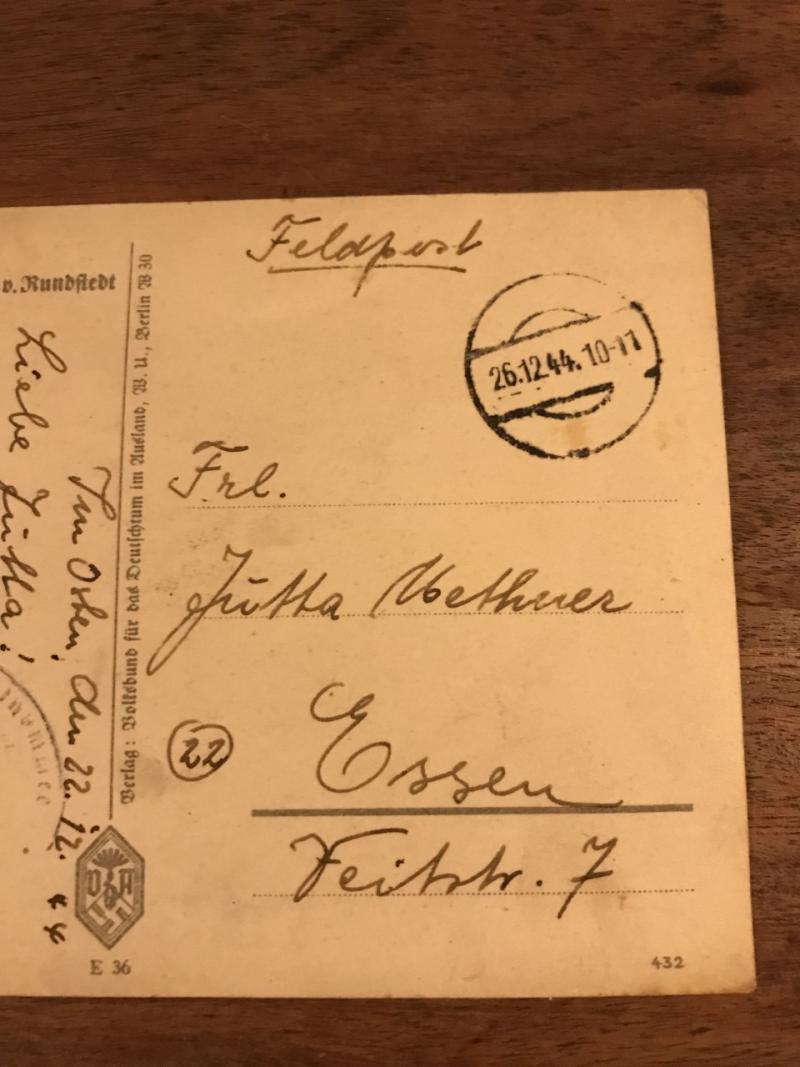 Feldpost
26.12.44. 10-11
Frl.
Jutta Wethner
22
Essen
Veitstr. 7
432
v. Rundstedt
Im Osten, den 22.12.44
Liebe Jutta!
Verlag: Volksbund für das Deutschtum im Ausland, W. U., Berlin W 30
VDA
E 36